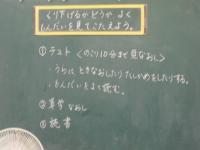 くり下げるかどうか よく
もんだいを見てこたえよう。
①テスト〈のこり10分まで見なおし〉
・うらに ときなおしたり たしかめをしたりする。
・もんだいをよく読む。
②算学 なおし
③読書